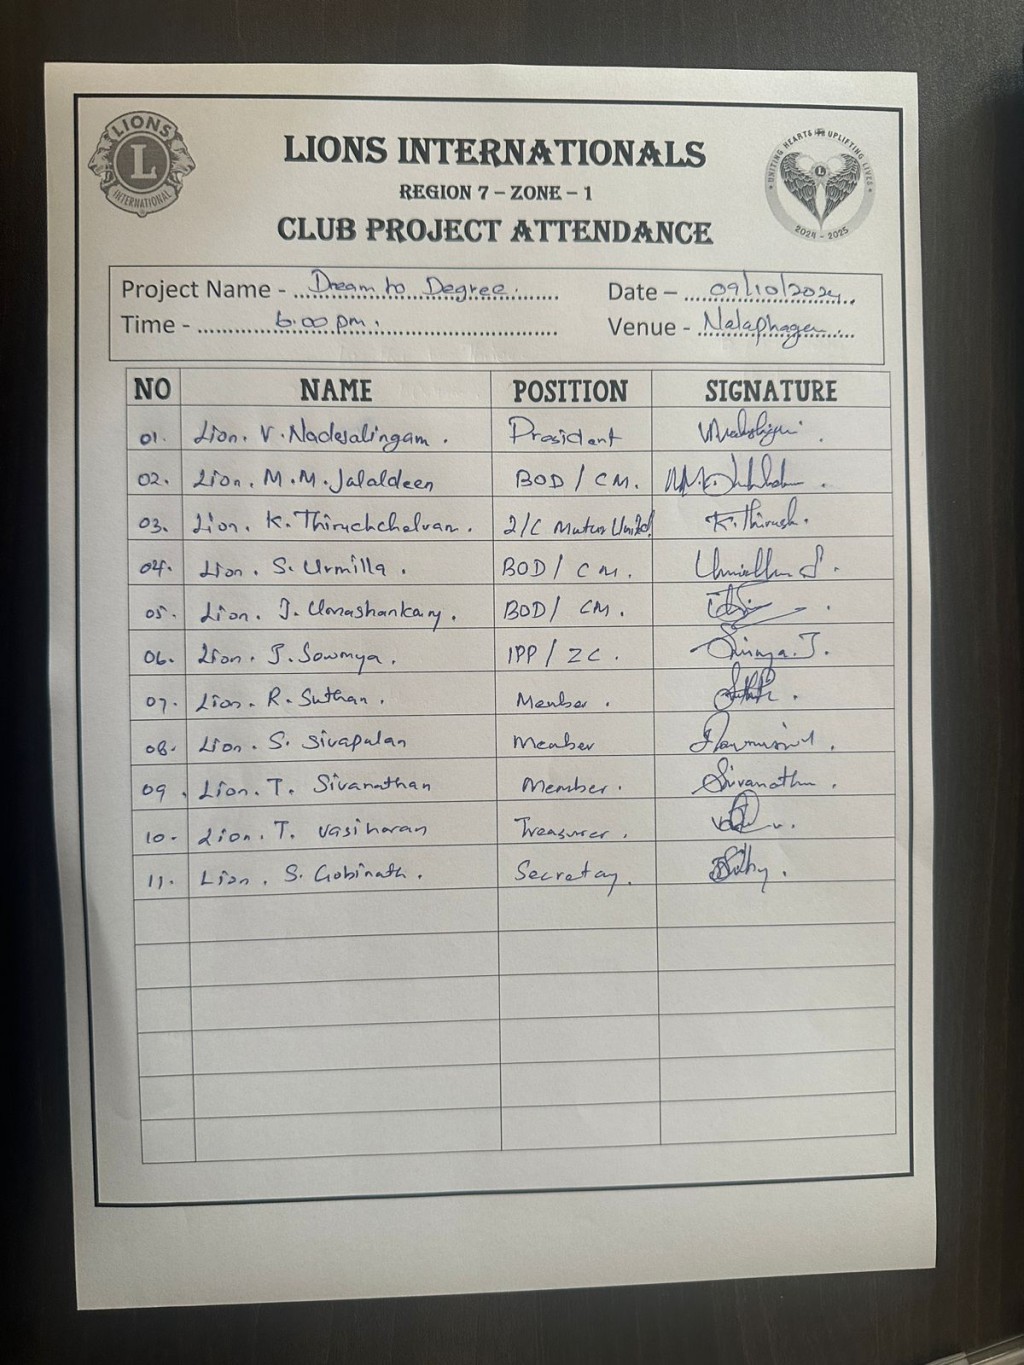 LIONS INTERNATIONAL
L
UNITING HEARTS UPLIFTING LIVES
L
2024 - 2025
LIONS INTERNATIONALS
REGION 7 – ZONE – 1
CLUB PROJECT ATTENDANCE
Project Name - Dream to Degree. Date – 09/10/2024.
Time - 6:00 pm. Venue -
NO NAME POSITION SIGNATURE
01. Lion. V. Nadesalingam. President
02. Lion. M. M. Jalaldeen BOD / CM.
03. Lion. K. Thiruchchelvan. K. Thirush.
04. Lion. S. Urmilla. BOD / CM.
05. Lion. J. Umashankary. BOD / CM.
06. Lion. J. Sowmya. IPP / ZC.
07. Lion. R. Suthan. Member.
08. Lion. S. Sivapalan Member
09. Lion. T. Sivanathan Member. Sivanathan.
10. Lion. T. Vasiharan Treasurer.
11. Lion. S. Gobinath. Secretay.